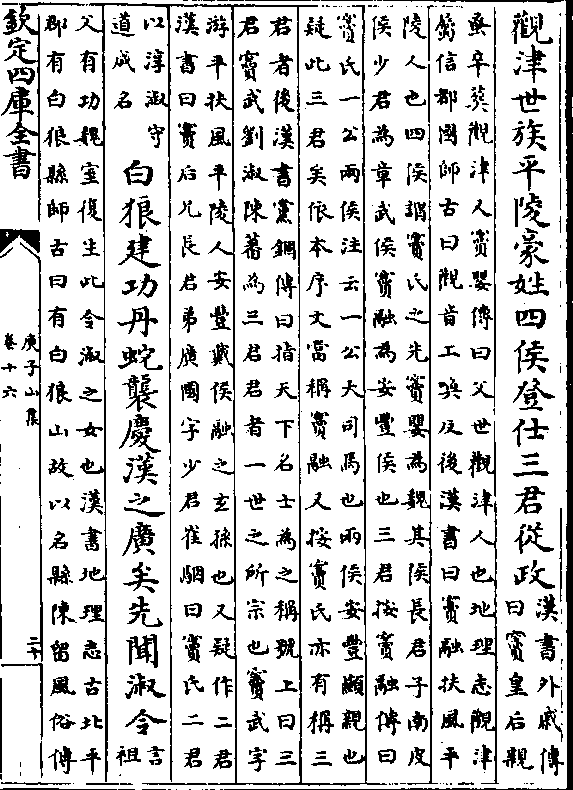 觀津世族平陵豪姓四侯登仕三君從政漢書外戚傳
曰竇皇后親
蚤卒葬觀津又竇嬰傳曰父世觀津人也地理志觀津
屬信都國師古曰觀音工喚反後漢書曰竇融扶風平
陵人也四侯謂竇氏之先竇嬰為魏其侯長君子南皮
侯少君為章武侯竇融為安豐侯也三君按竇融傳曰
竇氏一公兩侯注云一公大司馬也兩侯安豐顯親也
疑此三君矣依本序文當稱竇融又按竇氏亦有稱三
君者後漢書黨錮傳曰指天下名士為之稱號上曰三
君竇武劉淑陳蕃為三君君者一世之所宗也竇武字
游平扶風平陵人安豐戴侯融之玄孫也又疑作二君
漢書曰竇后兄長君弟廣國字少君崔駰曰竇氏二君
以淳淑守
道成名
白狼建功丹蛇襲慶漢之廣矣先聞淑令言
祖
父有功魏室復生此令淑之女也漢書地理志古北平
郡有白狼縣師古曰有白狼山故以名縣陳留風俗傳
欽定四庫全書
庾子山集
卷十六
二十